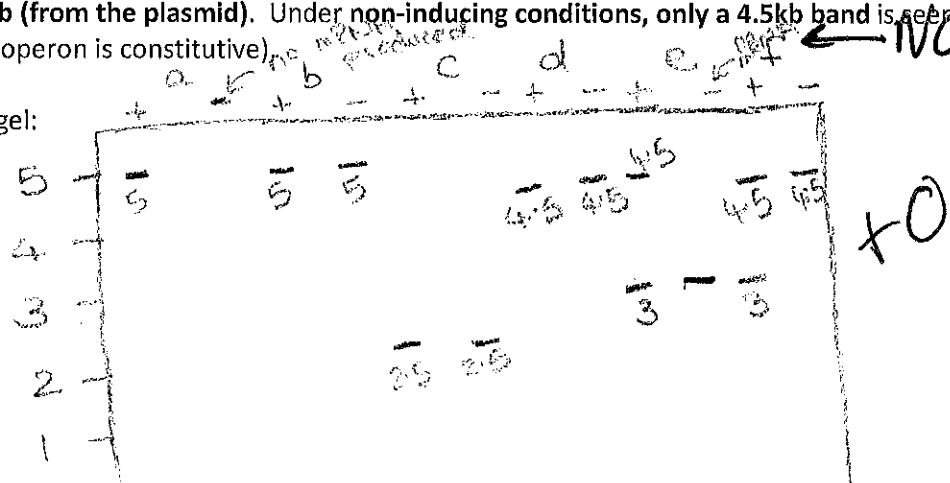 b (from the plasmid). Under non-inducing conditions, only a 4.5kb band is seen
operon is constitutive) no mRNA produced
a b c d e f
+ - + - + - + - + - + -
gel:
5 5 5 5 4.5 4.5 4.5 4.5 4.5
4
3 3 3
2 2.5 2.5
1
+0